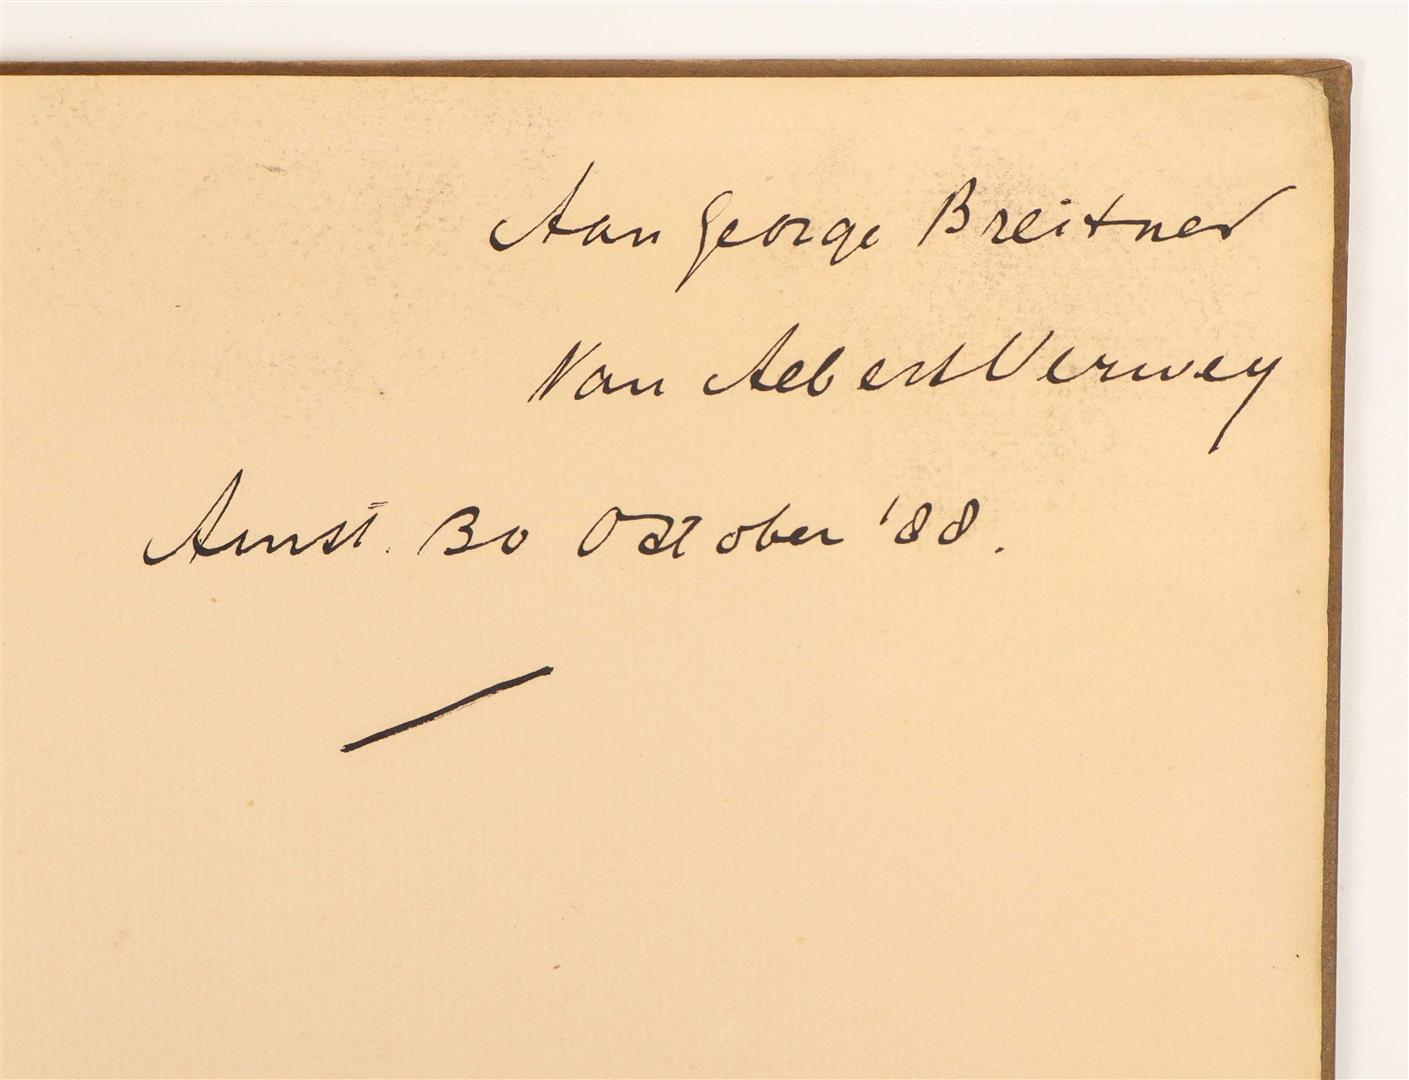 Aan George Breitner
Van Albert Verwey
Amst. 30 October '88.